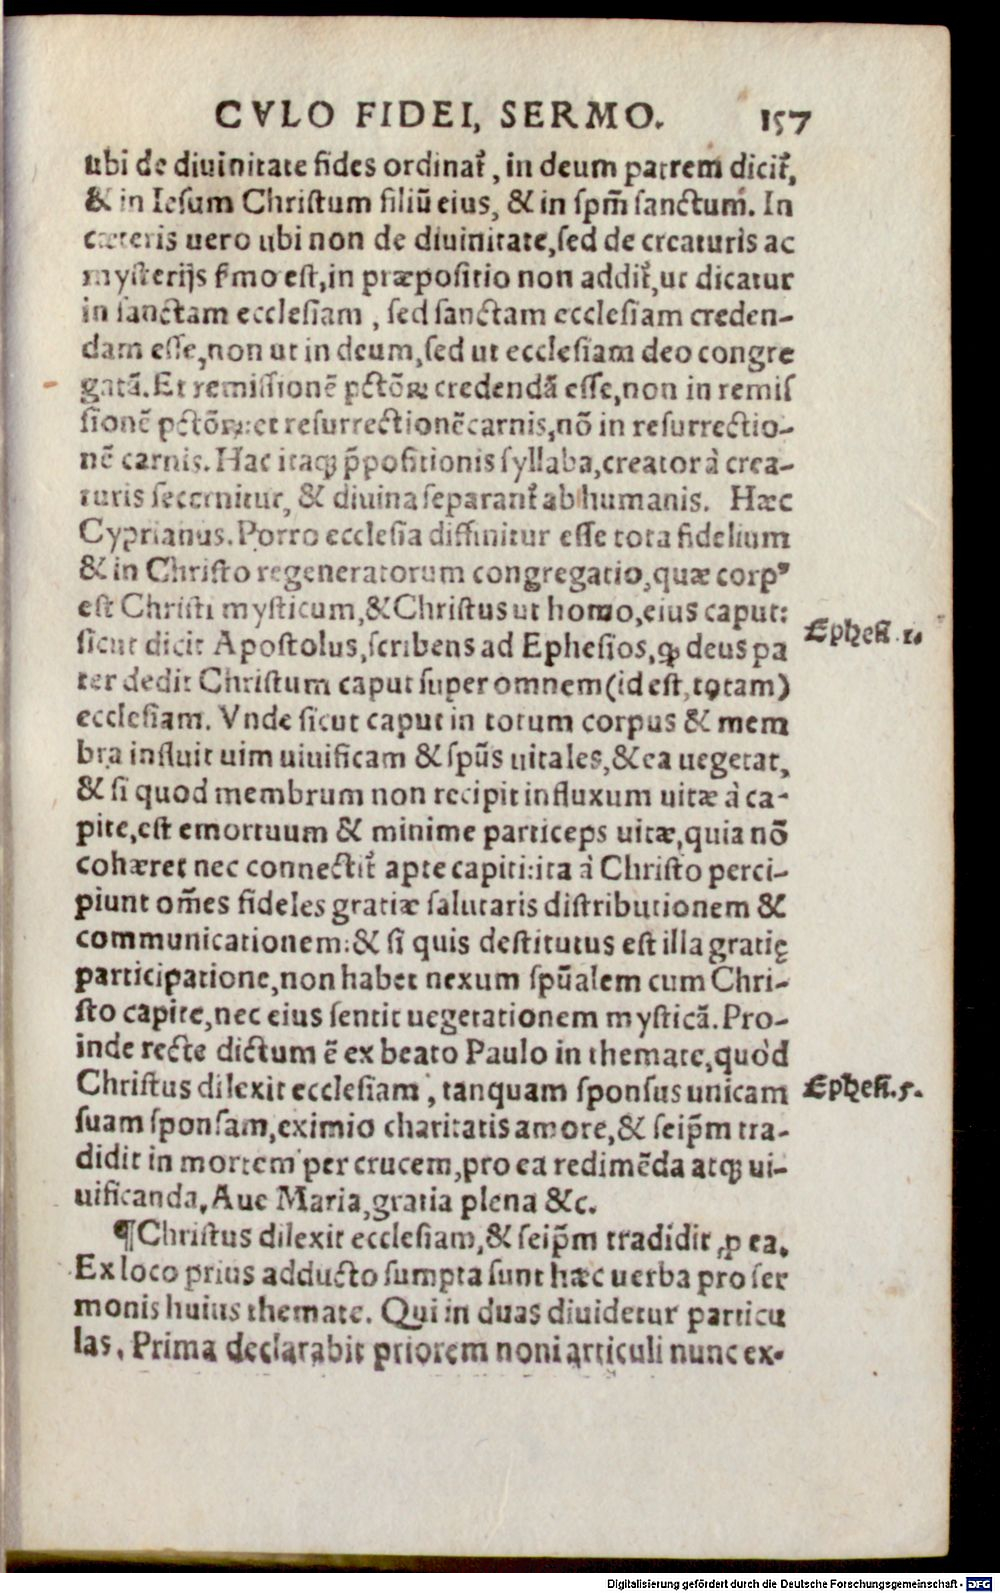 CVLO FIDEI, SERMO. 157
ubi de diuinitate fides ordinat᷑, in deum patrem dicit᷑,
& in Iesum Christum filiũ eius, & in spm̃ sanctum. In
cæteris uero ubi non de diuinitate, sed de creaturis ac
mysterijs s̃mo est, in præpositio non addit᷑, ut dicatur
in sanctam ecclesiam, sed sanctam ecclesiam creden-
dam esse, non ut in deum, sed ut ecclesiam deo congre
gatã. Et remissionẽ pctõꝝ credendã esse, non in remis
sionẽ pctõꝝ: et resurrectionẽ carnis, nõ in resurrectio-
nẽ carnis. Hac itaqꝫ p̃positionis syllaba, creator à crea-
turis secernitur, & diuina separant᷑ ab humanis. Hæc
Cyprianus. Porro ecclesia diffinitur esse tota fidelium
& in Christo regeneratorum congregatio, quæ corpꝰ
est Christi mysticum, & Christus ut homo, eius caput:
sicut dicit Apostolus, scribens ad Ephesios, ꝙ deus pa
ter dedit Christum caput super omnem (id est, totam)
ecclesiam. Vnde sicut caput in totum corpus & mem
bra influit uim uiuificam & spũs uitales, & ea uegetat,
& si quod membrum non recipit influxum uitæ à ca-
pite, est emortuum & minime particeps uitæ, quia nõ
cohæret nec connectit᷑ apte capiti: ita à Christo perci-
piunt om̃es fideles gratiæ salutaris distributionem &
communicationem: & si quis destitutus est illa gratię
participatione, non habet nexum spũalem cum Chri-
sto capite, nec eius sentit uegetationem mysticã. Pro-
inde recte dictum ẽ ex beato Paulo in themate, quòd
Christus dilexit ecclesiam, tanquam sponsus unicam
suam sponsam, eximio charitatis amore, & seip̃m tra-
didit in mortem per crucem, pro ea redimẽda atqꝫ ui-
uificanda. Aue Maria, gratia plena &c.
¶ Christus dilexit ecclesiam, & seip̃m tradidit ꝓ ea.
Ex loco prius adducto sumpta sunt hæc uerba pro ser
monis huius themate. Qui in duas diuidetur particu
las. Prima declarabit priorem noni articuli nunc ex-
Ephes. 1.
Ephes. 5.
Digitalisierung gefördert durch die Deutsche Forschungsgemeinschaft - DFG